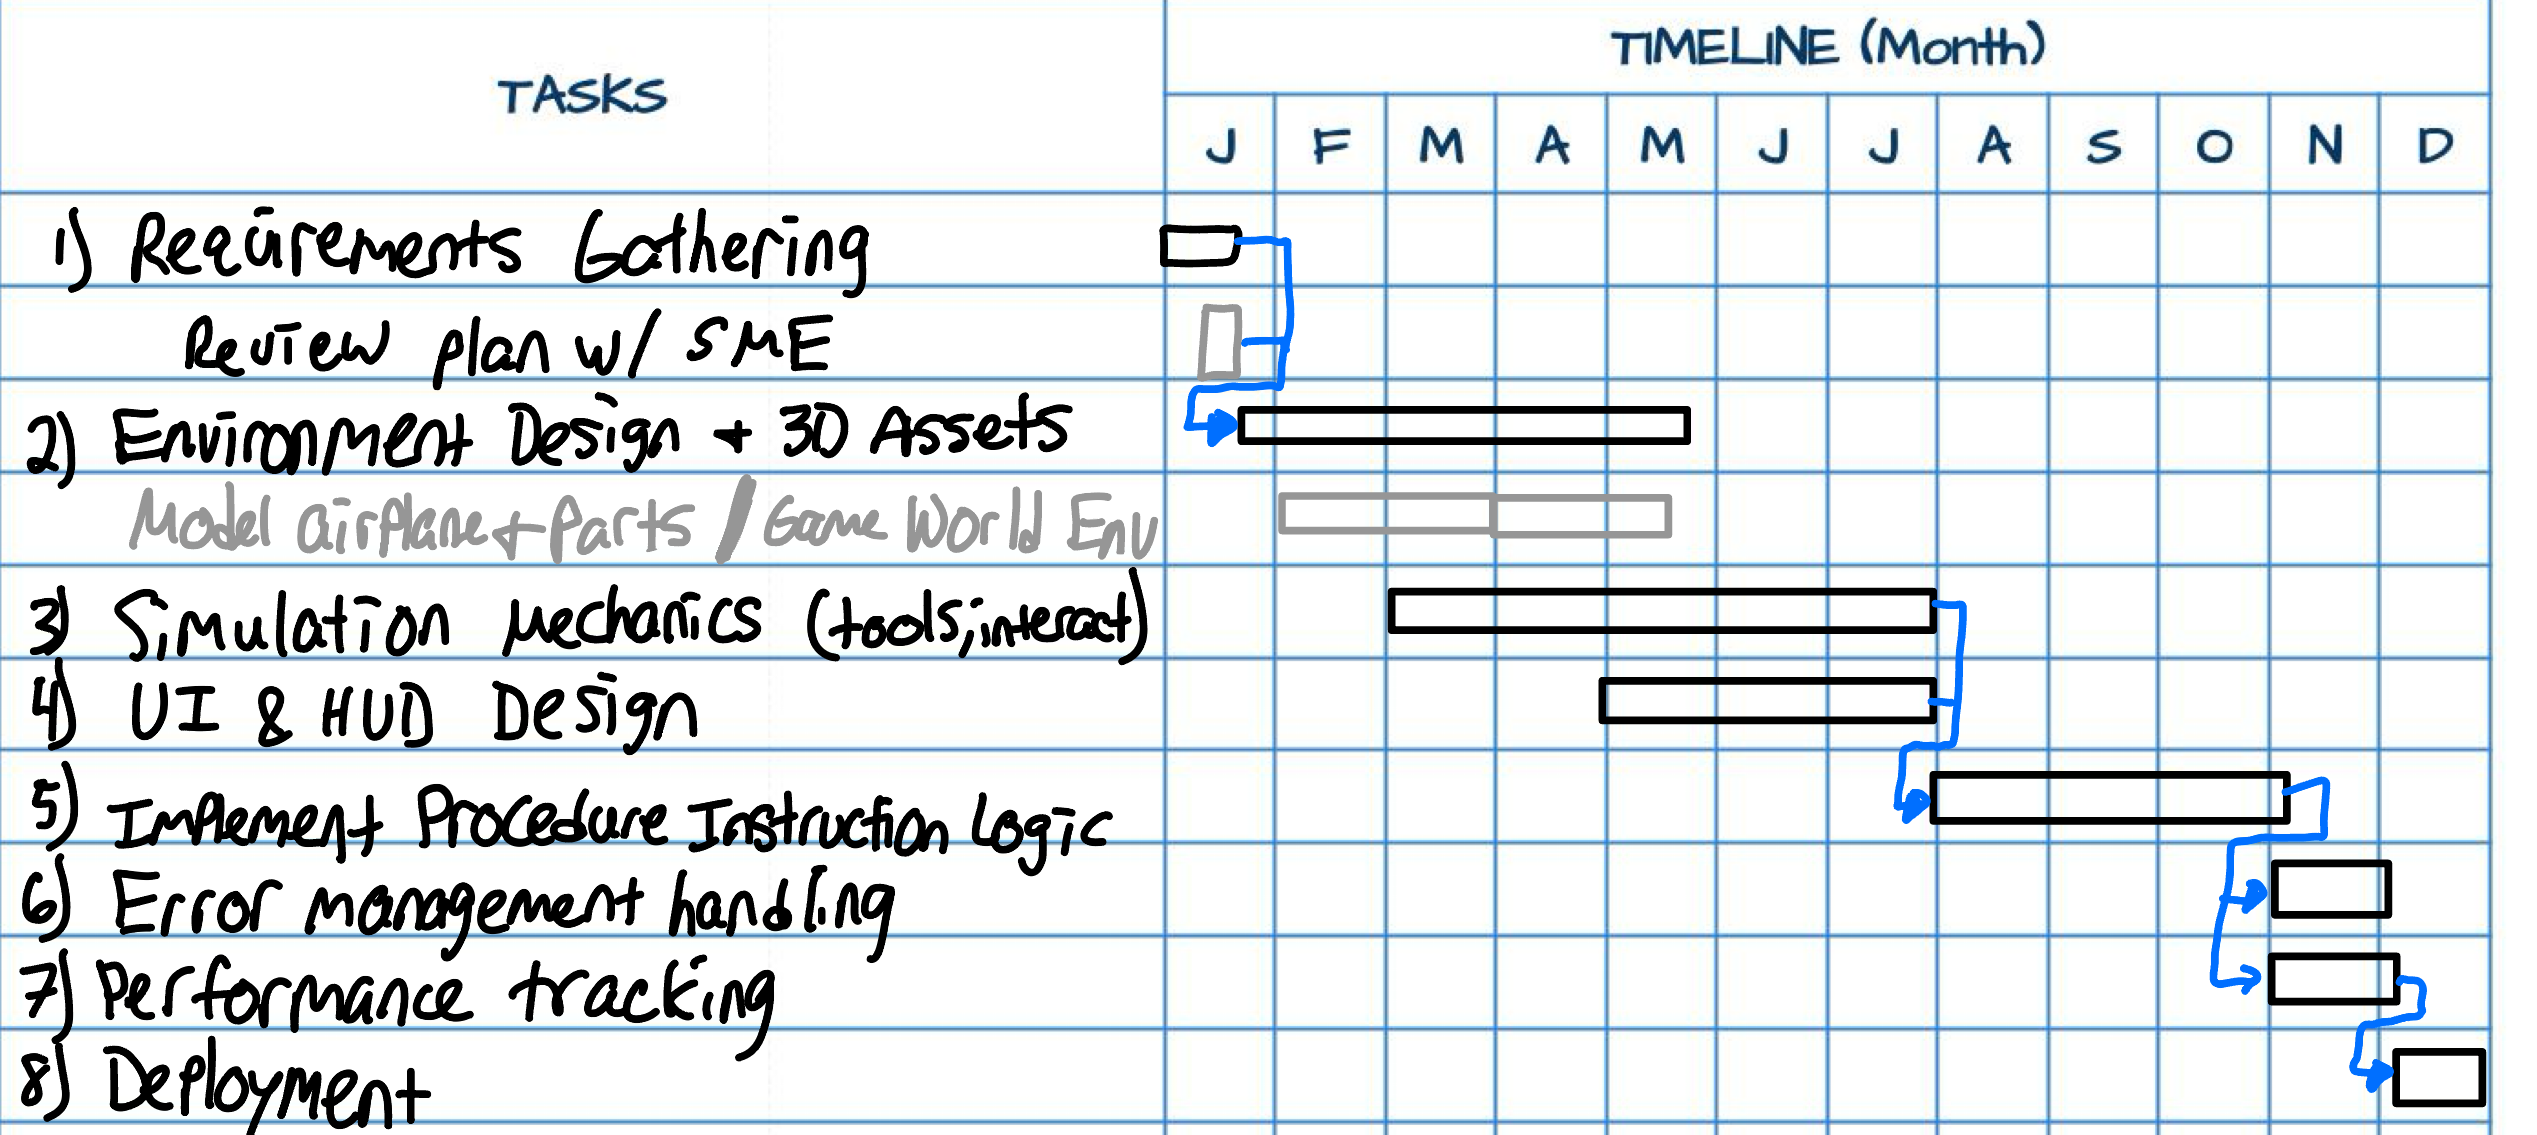 TASKS
TIMELINE (Month)
J F M A M J J A S O N D
1) Requirements Gathering
Review plan w/ SME
2) Environment Design + 3D Assets
Model airplane + Parts / Game World Env
3) Simulation Mechanics (tools, interact)
4) UI & HUD Design
5) Implement Procedure Instruction Logic
6) Error management handling
7) Performance tracking
8) Deployment